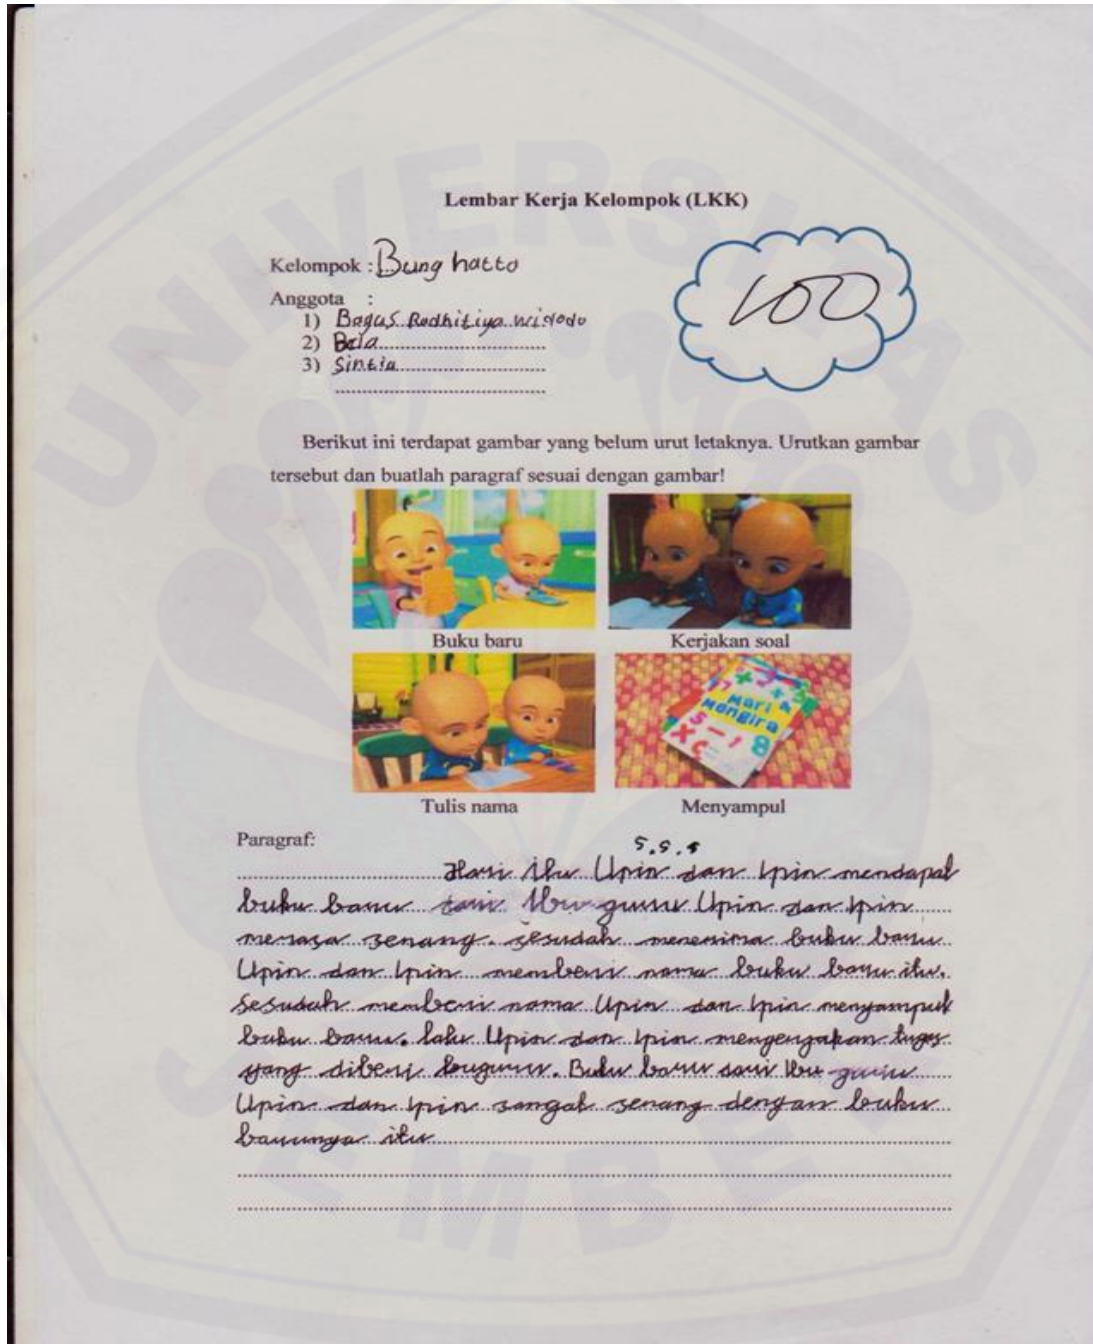 UNIVERSITAS
Lembar Kerja Kelompok (LKK)
Kelompok : Bung hatta
100
Anggota :
1) Bagus Radhitiya widodo
2) Bela
3) Sintia
Berikut ini terdapat gambar yang belum urut letaknya. Urutkan gambar
tersebut dan buatlah paragraf sesuai dengan gambar!
Buku baru
Kerjakan soal
Mari
Mengira
Tulis nama
Menyampul
Paragraf:
5.5.5
Hari itu Upin dan Ipin mendapat
buku baru dari Ibu guru Upin dan Ipin
merasa senang. sesudah menerima buku baru
Upin dan Ipin memberi nama buku baru itu.
Sesudah memberi nama Upin dan Ipin menyampul
buku baru. lalu Upin dan Ipin mengerjakan tugas
yang diberi buguru. Buku baru dari Ibu guru
Upin dan Ipin sangat senang dengan buku
barunya itu
JEMBER